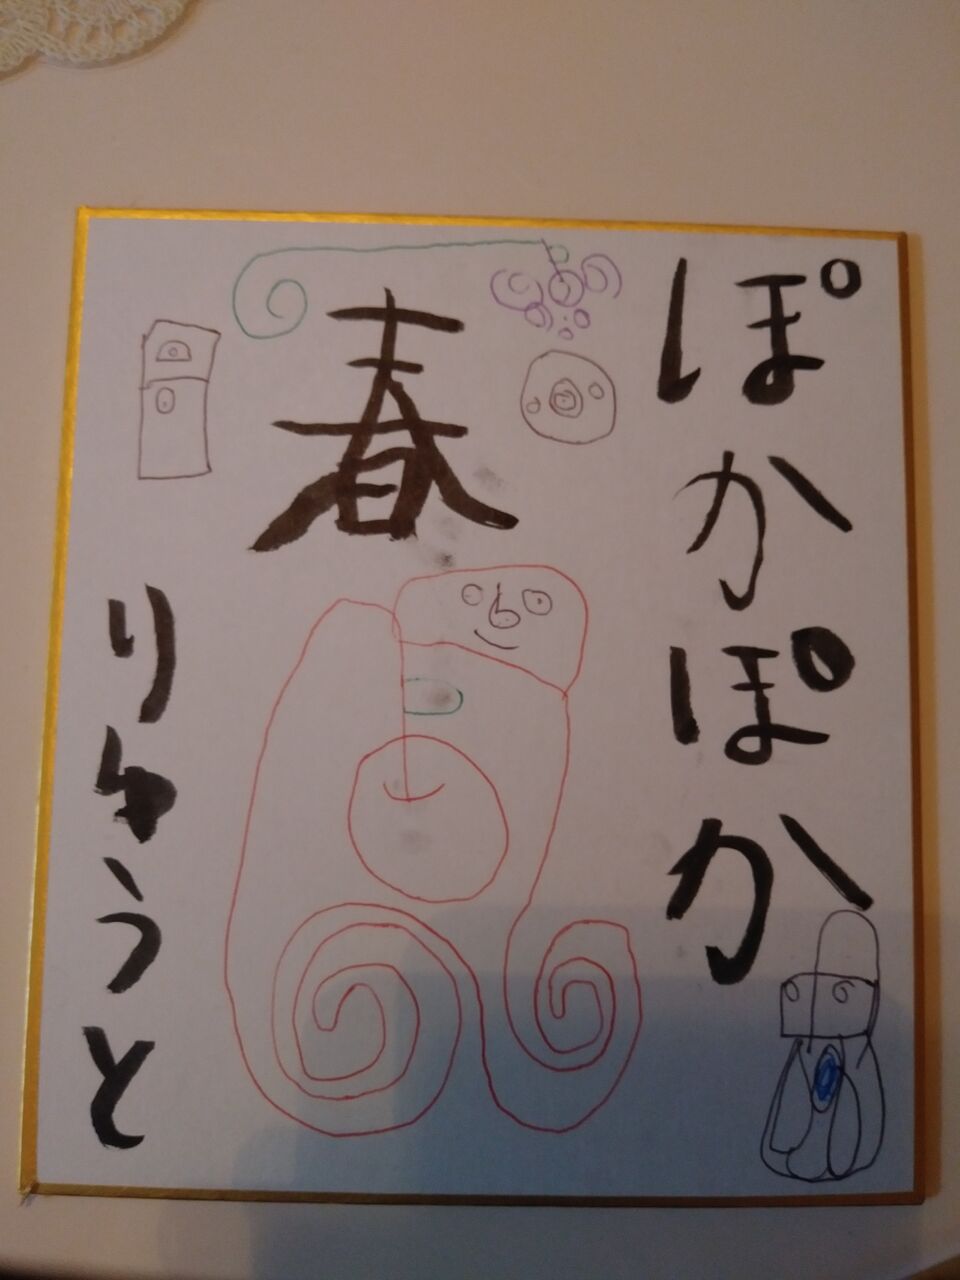 ぽかぽか
春
りゅうと